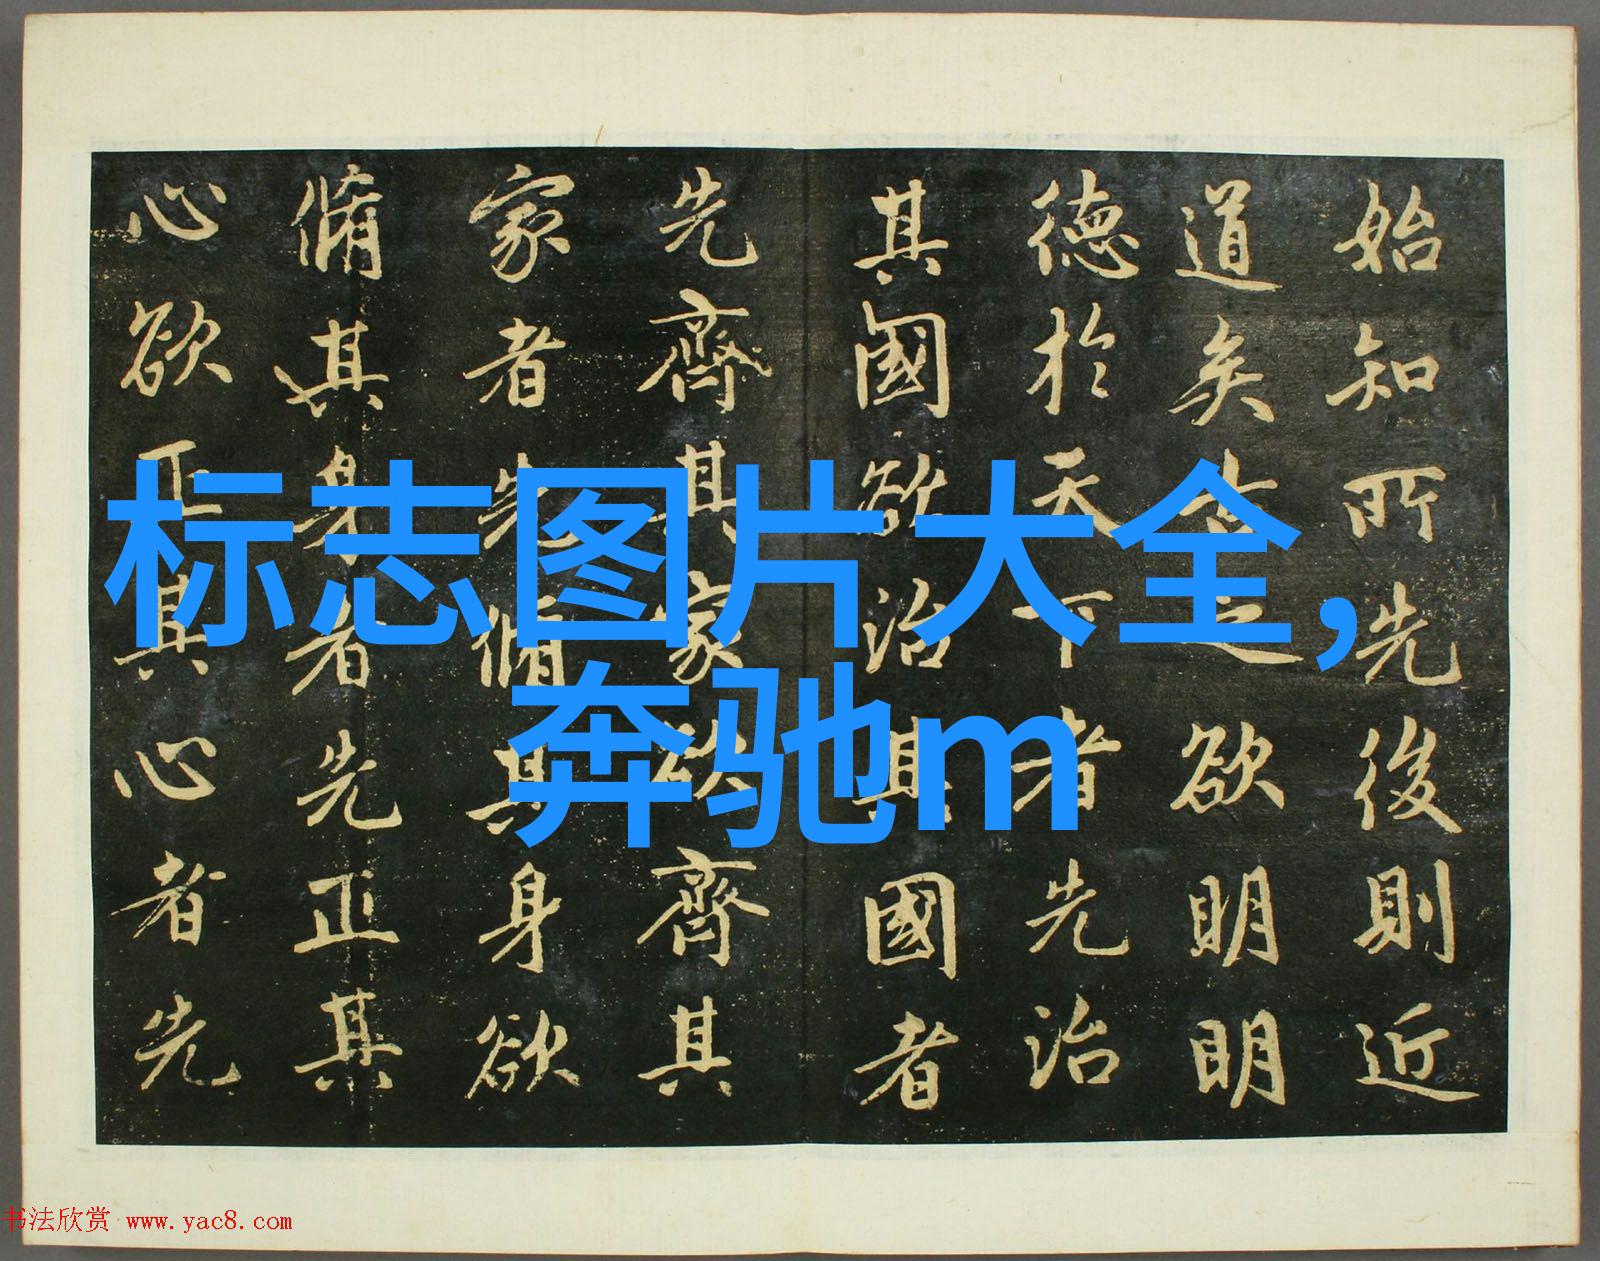 标志图片大全,
奔驰m
始知所先後則近
道矣古之欲明明
德於天下者先治
其國欲治其國者
先齊其家欲齊其
家者先脩其身欲
脩其身者先正其
心欲正其心者先
书法欣赏 www.yac8.com